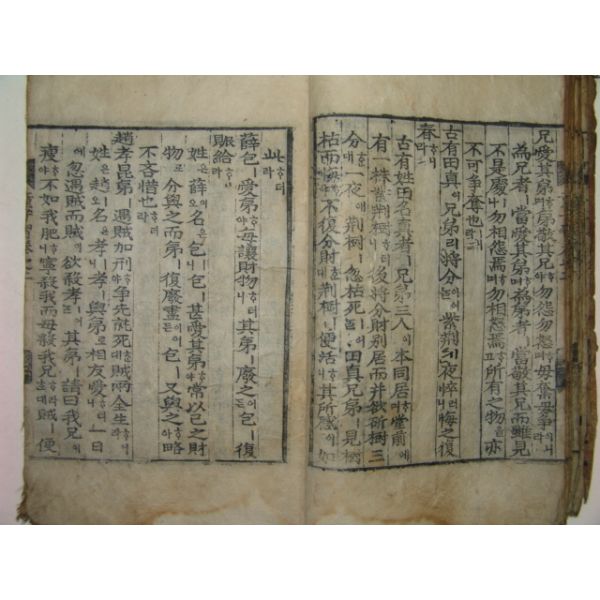 兄愛其弟ᄒᆞ며弟敬其兄ᄒᆞ야勿怨勿怒ᄒᆞ며毋奪毋爭이니라
為兄者ㅣ當愛其弟ᄒᆞ며為弟者ㅣ當敬其兄而雖見
不是處ㅣ나勿相怨焉ᄒᆞ며勿相怒焉ᄒᆞ고所有之物을亦
不可爭奪也ㅣ라
古有田真이兄弟ㅣ러니將分이어ᄂᆞᆯ紫荆이一夜悴러니悔之復
春ᄒᆞ니라
古有姓田名真者ㅣ兄弟三人이本同居ᄒᆞ며堂前에
有一株紫荆樹ㅣ러니後將分財别居而并欲斫樹三
分ᄒᆞᆫ대一夜에荆樹ㅣ忽枯死ㅣ어ᄂᆞᆯ田真兄弟ㅣ見樹
枯而悔ᄒᆞ야不復分財ᄒᆞᆫ대荆樹ㅣ便活ᄒᆞ니其所感이如
此ᄒᆞ더라
薛包ㅣ愛弟ᄒᆞ야毎讓財物ᄒᆞ더니其弟ㅣ廢之어든包ㅣ復
賑給ᄒᆞ더라
姓은薛이오名은包ㅣ니包ㅣ甚愛其弟ᄒᆞ야常以己之財
物로分與之而弟ㅣ復廢盡이어든包ㅣ又與之ᄒᆞ야略
不吝惜也ㅣ라
趙孝昆弟ㅣ遇賊加刑ᄒᆞ야爭先請死ᄒᆞᆫ대賊兩全生ᄒᆞ니라
姓은趙ㅣ오名은孝ㅣ니孝ㅣ與弟로相友愛ᄒᆞ더니一日
에忽遇賊而賊이欲殺孝ㅣ어ᄂᆞᆯ其弟ㅣ請曰我兄이
瘦ᄒᆞ야不如我肥ᄒᆞ니寧殺我而毋殺我兄ᄒᆞ라ᄒᆞᆫ대賊ㅣ便